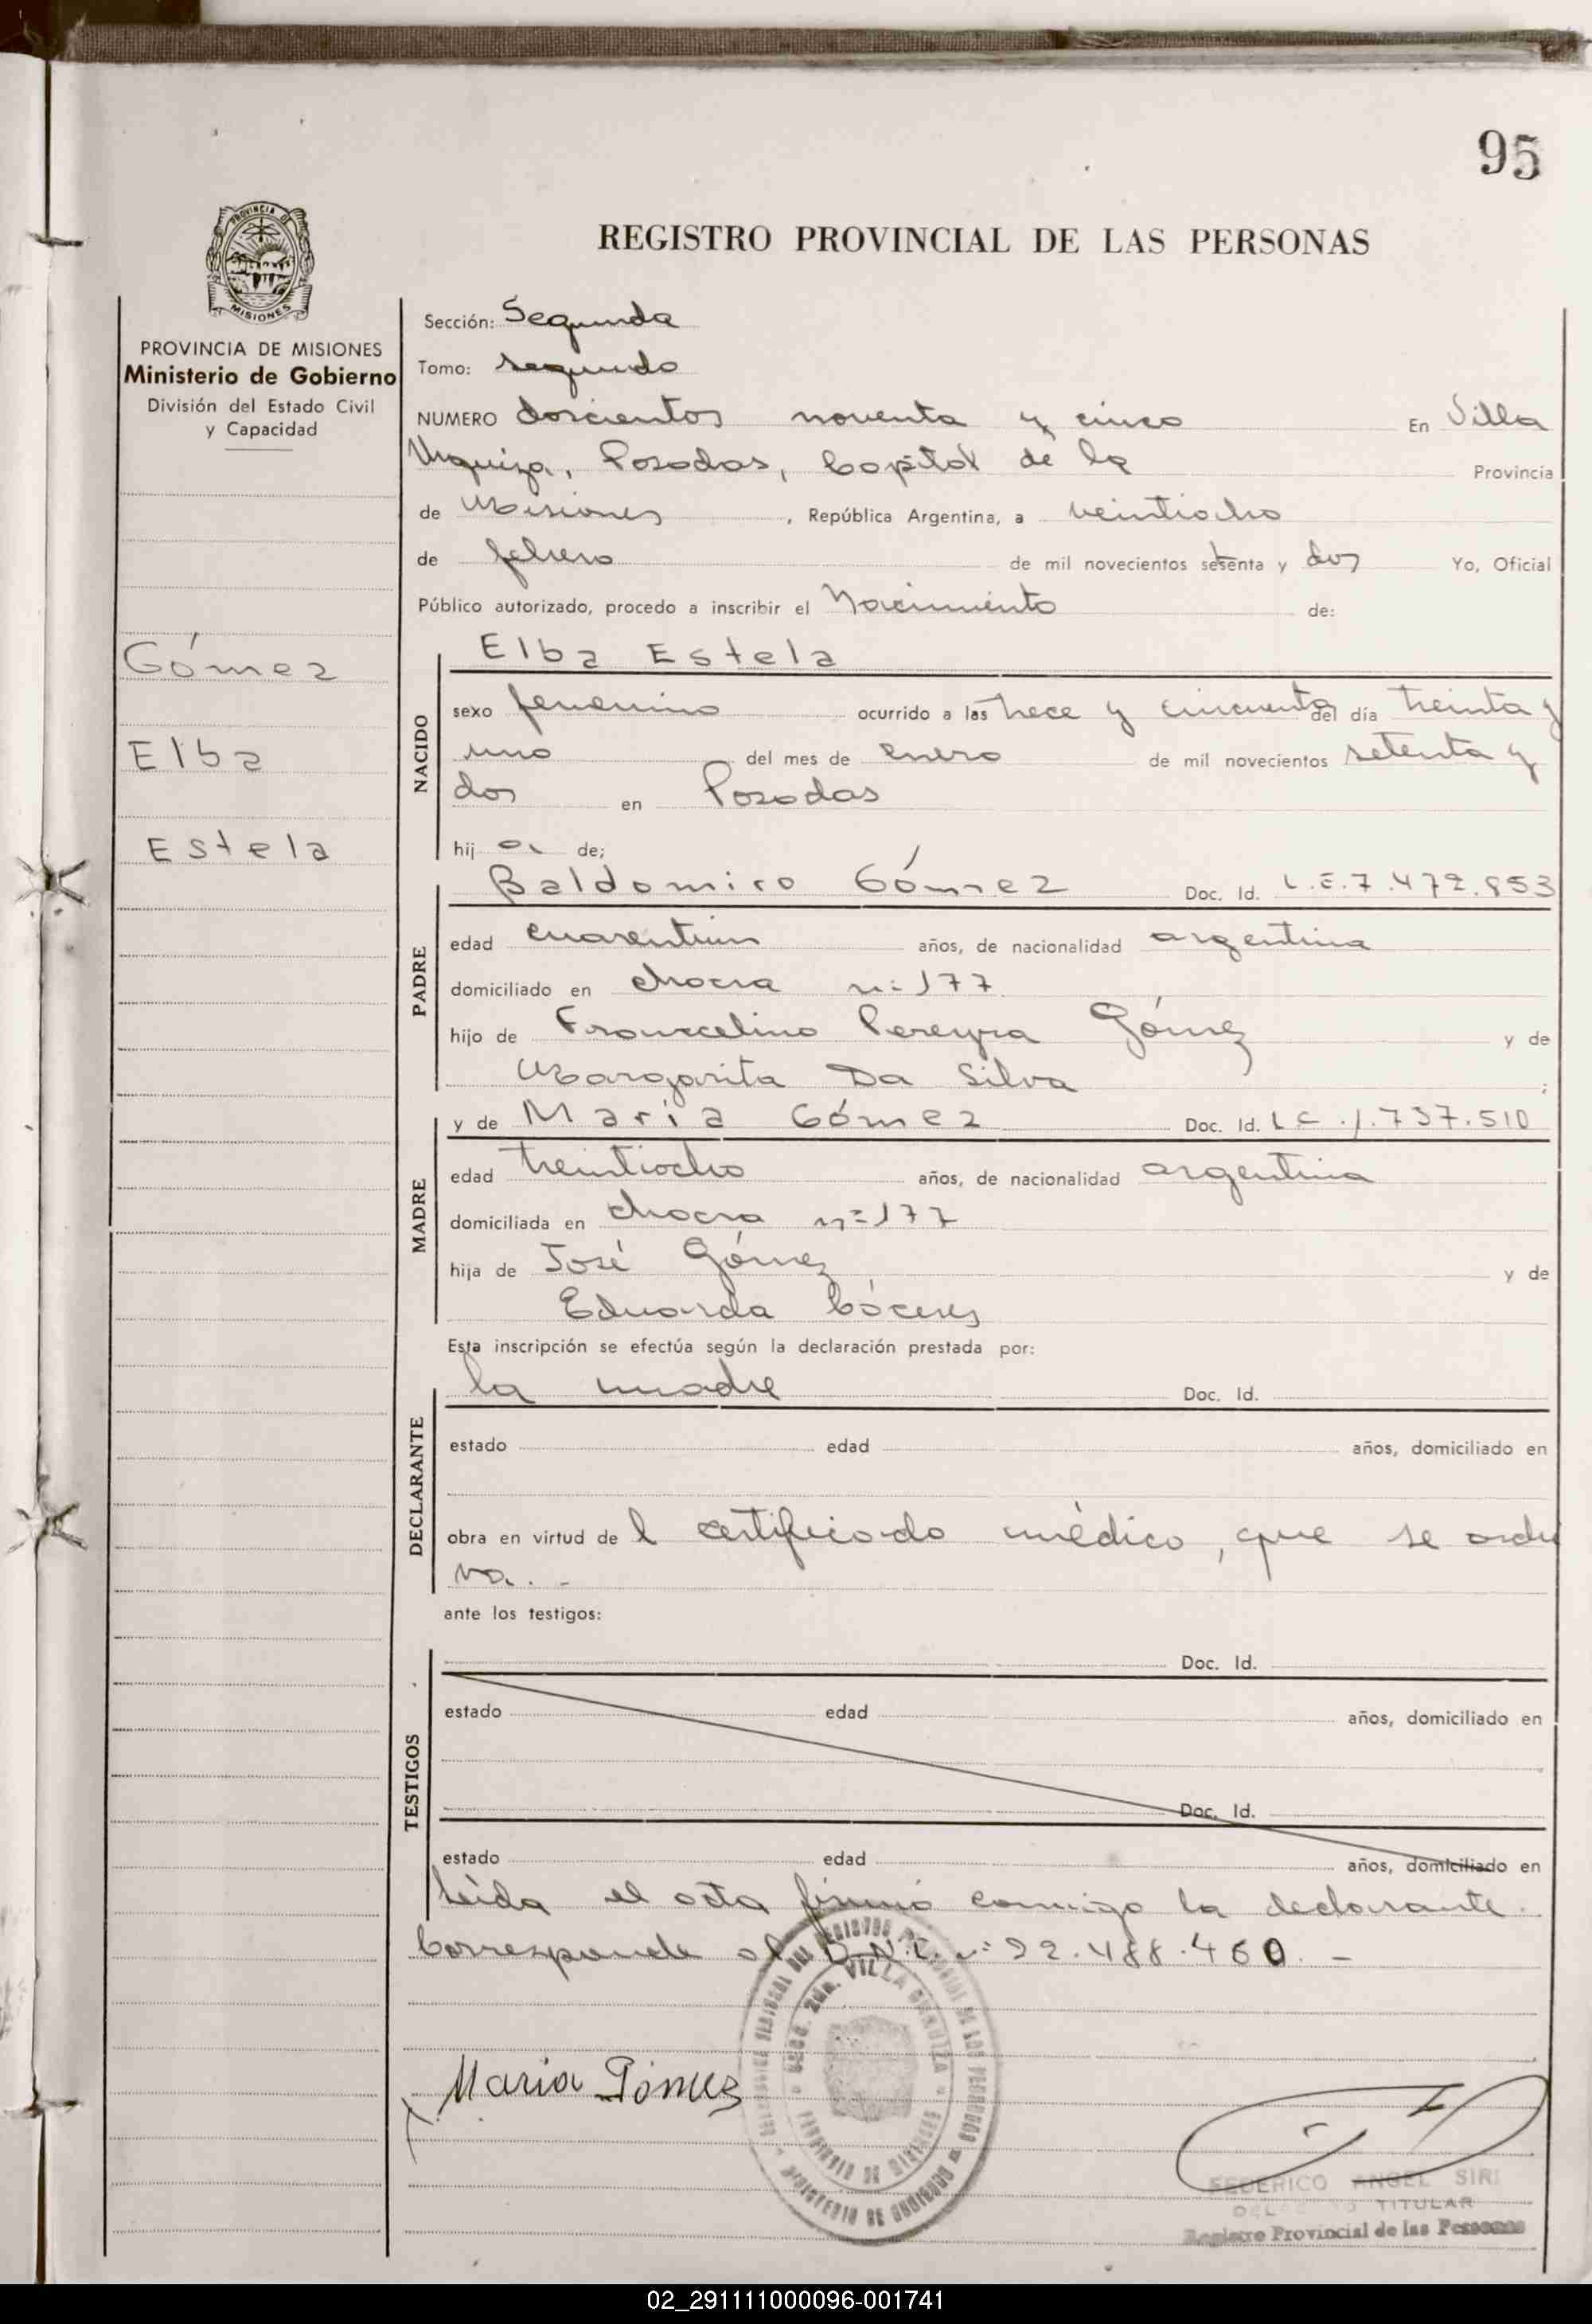 95
PROVINCIA DE
MISIONES
REGISTRO PROVINCIAL DE LAS PERSONAS
PROVINCIA DE MISIONES
Ministerio de Gobierno
División del Estado Civil
y Capacidad
Gómez
Elba
Estela
Sección: Segunda
Tomo: segundo
NUMERO doscientos noventa y cinco En Villa
Urquiza, Posadas, Capital de la Provincia
de Misiones, República Argentina, a veintiocho
de febrero de mil novecientos setenta y dos Yo, Oficial
Público autorizado, procedo a inscribir el Nacimiento de:
NACIDO
Elba Estela
sexo femenino ocurrido a las trece y cincuenta del día treinta y
uno del mes de enero de mil novecientos setenta y
dos en Posadas
hij a de;
PADRE
Baldomiro Gómez Doc. Id. L.E.7.472.853
edad cuarentiun años, de nacionalidad argentina
domiciliado en chacra nº 177
hijo de Francelino Pereyra Gómez y de
Margarita Da Silva ;
MADRE
y de María Gómez Doc. Id. L C .1.737.510
edad treintiocho años, de nacionalidad argentina
domiciliada en chacra nº 177
hija de José Gómez y de
Eduarda Cáceres
Esta inscripción se efectúa según la declaración prestada por:
DECLARANTE
la madre Doc. Id.
estado edad años, domiciliado en
obra en virtud de l certificado médico, que se archi
va. -
ante los testigos:
TESTIGOS
Doc. Id.
estado edad años, domiciliado en
Doc. Id.
estado edad años, domiciliado en
leída el acta firmó conmigo la declarante.
Corresponde al D.N.I. nº 22.488.460. -
María Gómez
VILLA URQUIZA
PROVINCIA DE MISIONES
MINISTERIO DE GOBIERNO
FEDERICO ANGEL SIRI
TITULAR
Registro Provincial de las Personas
02_291111000096-001741